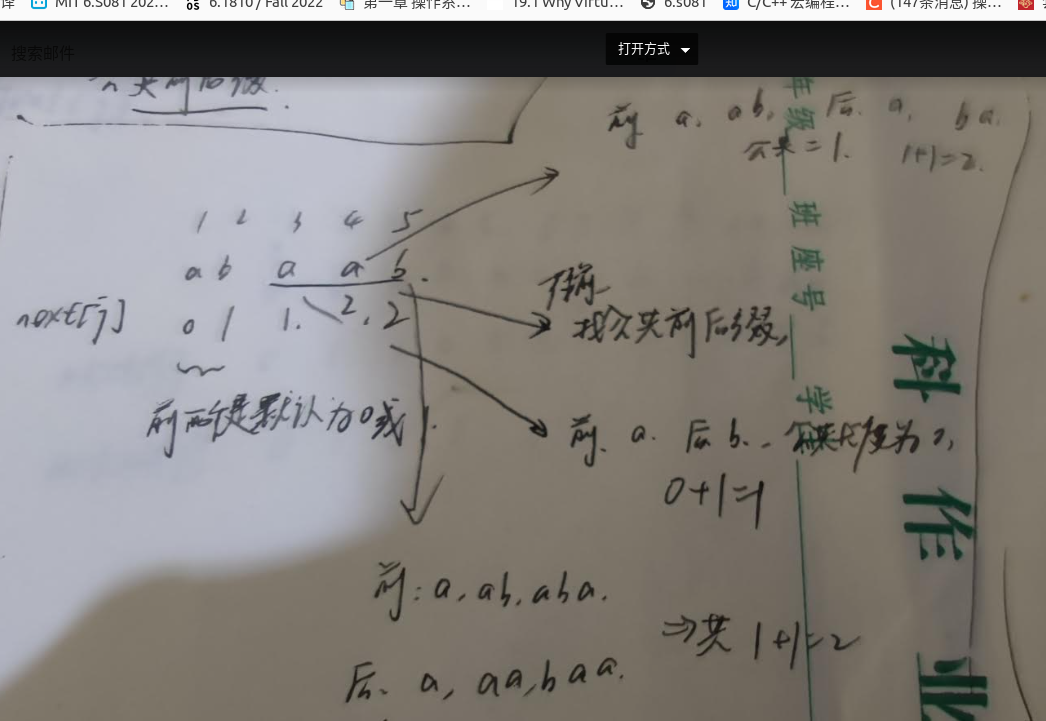 译 MIT 6.S081 202… 6.1810 / Fall 2022 第一章 操作系… 19.1 Why Virtu… 6.s081 C/C++ 宏编程… (147条消息) 操…
搜索邮件 打开方式
公共前后缀.
前 a, ab, 后. a, ba.
公共=1. 1+1=2.
1 2 3 4 5
a b a a b.
next[j] 0 1 1. 2, 2
往前
找公共前后缀,
前两个是默认为0或1.
前. a. 后 b. 公共长度为0,
0+1=1
前: a, ab, aba.
⇒共 1+1=2
后. a, aa, baa.
年级
班
座号
学
科
作
业